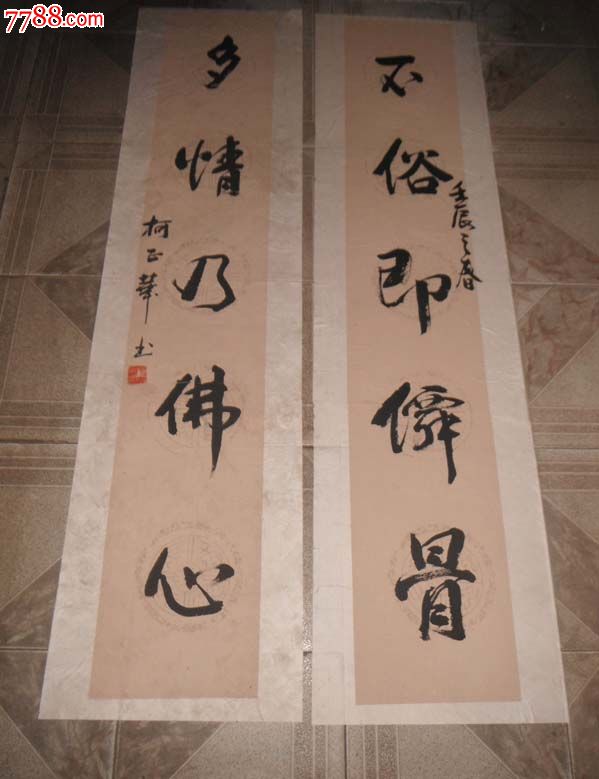 7788.com
不俗即僊骨
壬辰之春
多情乃佛心
柯正華书